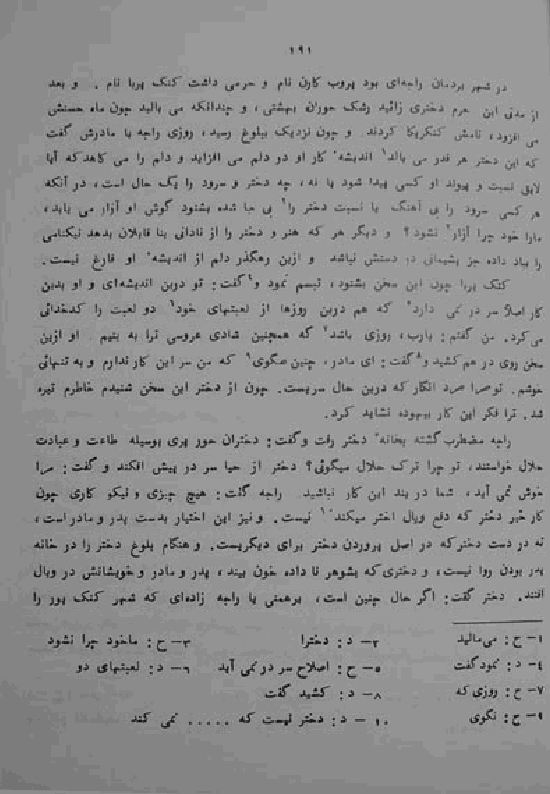 ۱۹۱
در شهر بردمان راجه‌ای بود پروب کارن نام و حرمی داشت کنک پربا نام . و بعد
از مدتی این حرم دختری زائید رشک حوران بهشتی، و چندانکه می بالید چون ماه حسنش
می افزود، نامش کنکریکا کردند و چون نزدیک ببلوغ رسید، روزی راجه با مادرش گفت
که این دختر هر قدر می بالد۱ اندیشه کار او در دلم می افزاید و دلم را می کاهد که آیا
لایق نسبت و پیوند او کسی پیدا شود یا نه، چه دختر و سرود را یک حال است، در آنکه
هر کسی سرود را بی آهنگ یا نسبت دختر را۲ بی جا شده بشنود گوش او آزار می یابد،
مارا خود چرا آزار۳ نشود؟ و دیگر هر که هنر و دختر را از نادانی بنا قابلان بدهد نیکنامی
را بباد داده جز پشیمانی در دستش نباشد و ازین رهگذر دلم از اندیشه او فارغ نیست.
کنک پربا چون این سخن بشنود، تبسم نمود و۴ گفت: تو درین اندیشه‌ای و او بدین
کار اصلاً سر در نمی دارد۵ که هم درین روزها از لعبتهای خود۶ دو لعبت را کدخدائی
می کرد. من گفتم: یارب، روزی باشد۷ که همچنین شادی عروسی ترا به بنیم. او ازین
سخن روی در هم کشید و۸ گفت: ای مادر، چنین مگوی۹ که من سر این کار ندارم و به تنهائی
خوشم. تو مرا مرده انگار که درین حال سریست. چون از دختر این سخن شنیدم خاطرم تیره
شد. ترا فکر این کار بیهوده نشاید کرد.
راجه مضطرب گشته بخانه دختر رفت و گفت: دختران حور پری بوسیله طاعت و عبادت
حلال خواستند، تو چرا ترک حلال میگوئی؟ دختر از حیا سر در پیش افکند و گفت: مرا
خوش نمی آید، شما در بند این کار نباشید. راجه گفت: هیچ چیزی و نیکو کاری چون
کار خیر دختر که دفع وبال اختر میکند۱۰ نیست. و نیز این اختیار بدست پدر و مادر است،
نه در دست دختر که در اصل پروردن دختر برای دیگریست. و هنگام بلوغ دختر را در خانه
پدر بودن روا نیست، و دختری که بشوهر نا داده خون بیند، پدر و مادر و خویشانش در وبال
افتند. دختر گفت: اگر حال چنین است، برهمنی یا راجه زاده‌ای که شهر کنک پور را
۱– ح: می‌مالید ۲– د: دخترا ۳– ح: ماخود چرا نشود
۴– د: نمود گفت ۵– ح: اصلاح سر در نمی آید ۶– د: لعبتهای دو
۷– ح: روزی که ۸– د: کشید گفت
۹– ح: نگوی ۱۰– د: دختر نیست که ..... نمی کند